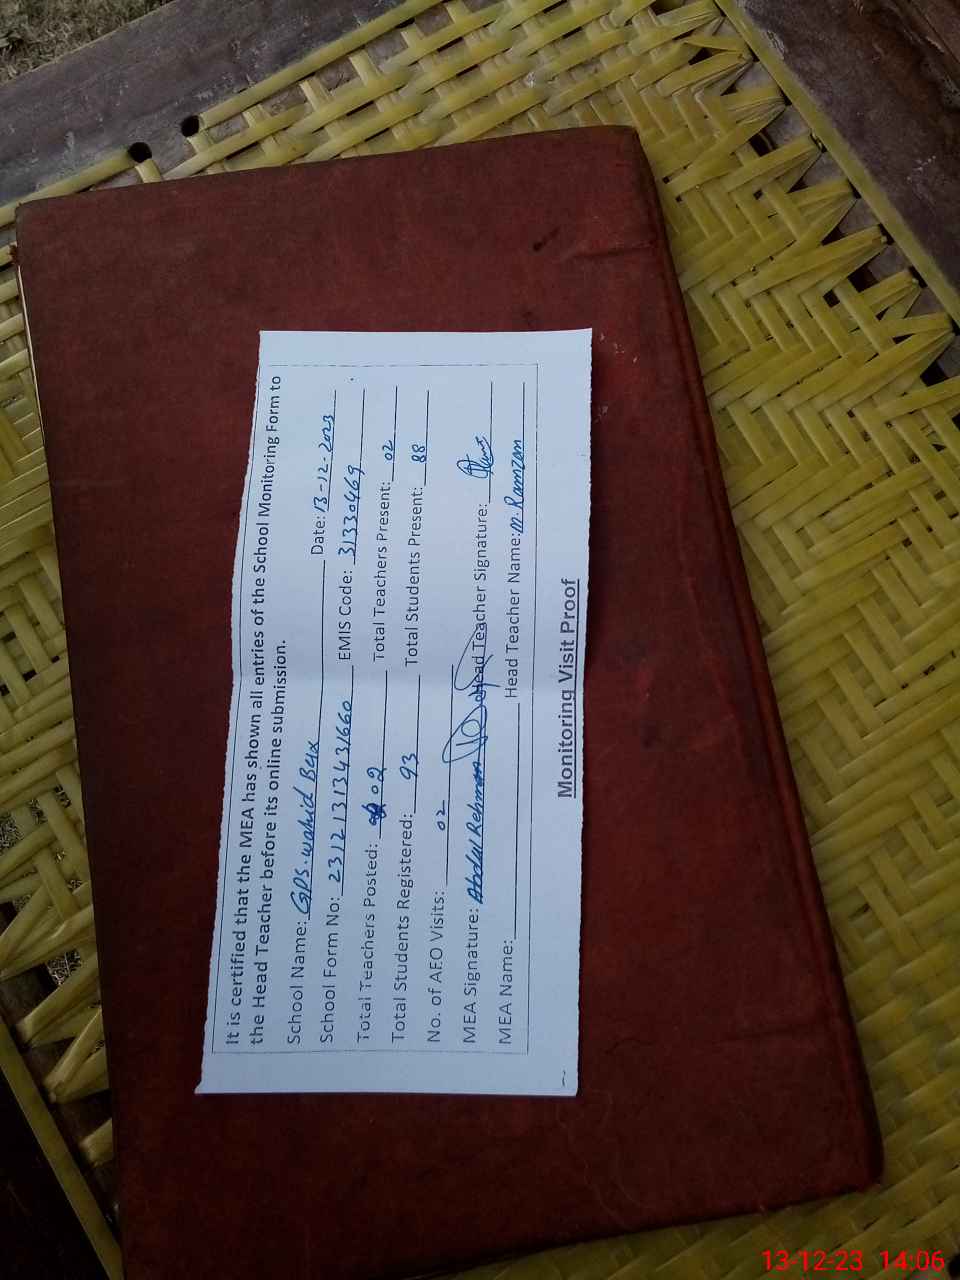 It is certified that the MEA has shown all entries of the School Monitoring Form to
the Head Teacher before its online submission.
School Name: GPS. Wahid Bux Date: 13-12-2023
School Form No: 23121313431660 EMIS Code: 31330469
Total Teachers Posted: 02 Total Teachers Present: 02
Total Students Registered: 93 Total Students Present: 88
No. of AEO Visits: 02
MEA Signature: Abdul Rehman Head Teacher Signature:
MEA Name: Head Teacher Name: M. Ramzan
Monitoring Visit Proof
13-12-23 14:06